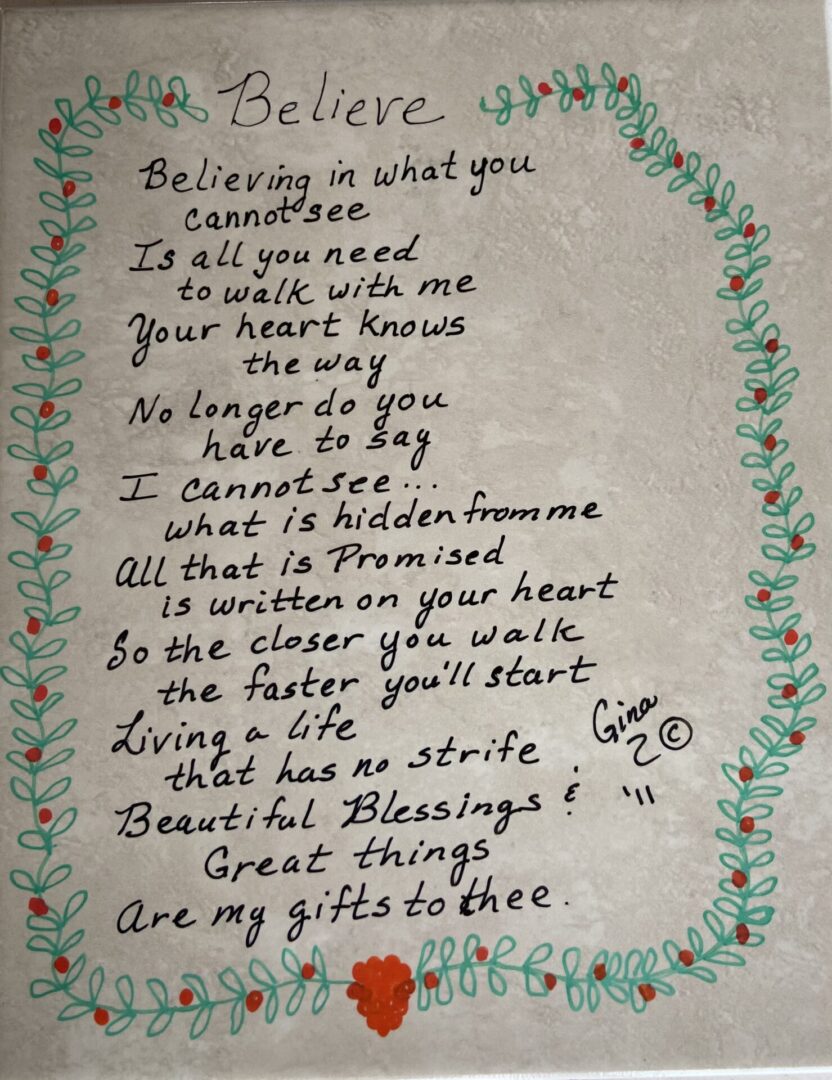 Believe
Believing in what you
cannot see
Is all you need
to walk with me
Your heart knows
the way
No longer do you
have to say
I cannot see...
what is hidden from me
All that is Promised
is written on your heart
So the closer you walk
the faster you'll start
Living a life
that has no strife
Beautiful Blessings &
Great things
Are my gifts to thee.
Gina
Z ©
'11